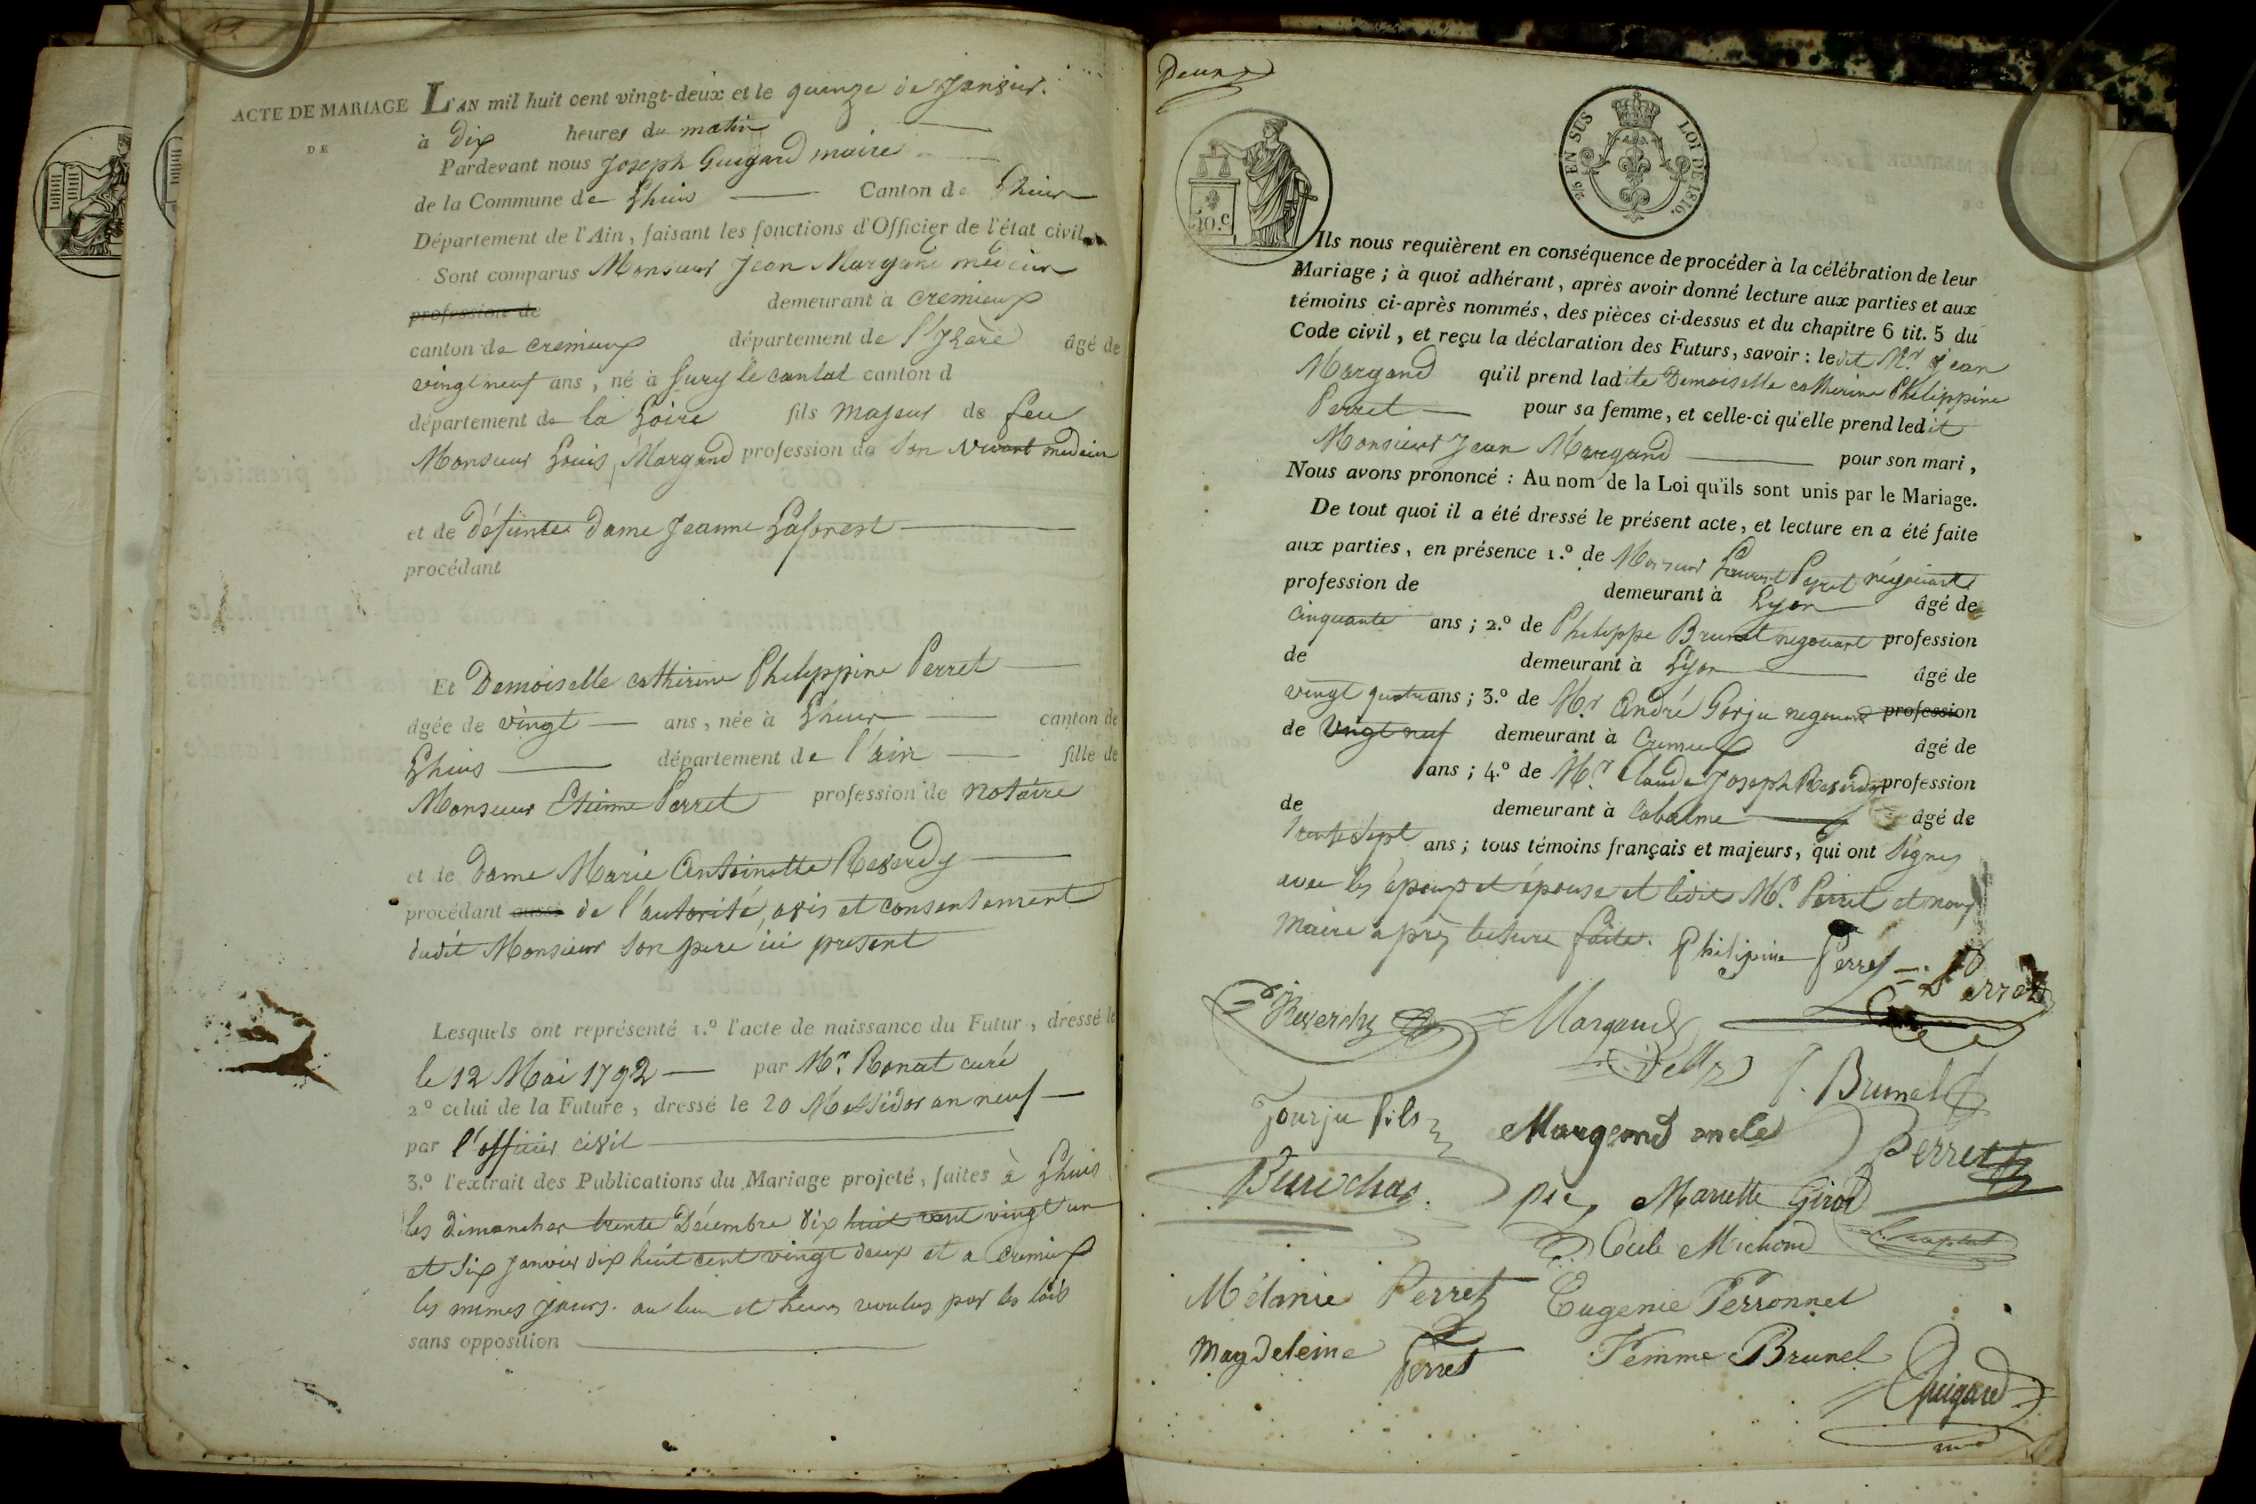 ACTE DE MARIAGE
DE
L'AN mil huit cent vingt-deux et le quinze de Janvier.
à Dix heures du matin
Pardevant nous Joseph Guigard maire
de la Commune de Lhuis Canton de Lhuis
Département de l'Ain, faisant les fonctions d'Officier de l'état civil
Sont comparus Monsieur Jean Margand médecin
profession de demeurant à Cremieux
canton de Cremieux département de l'Isère âgé de
vingt neuf ans, né à Sury le comtal canton d
département de la Loire fils majeur de feu
Monsieur Louis Margand profession de son vivant medecin
et de défunte Dame Jeanne Laforest
procédant
Et Demoiselle catherine Philippine Perret
âgée de vingt ans, née à Lhuis canton de
Lhuis département de l'ain fille de
Monsieur Etienne Perret profession de notaire
et de Dame Marie Antoinette Reverdy
procédant aussi de l'autorité, avis et consentement
dudit Monsieur son pere ici present
Lesquels ont représenté 1.º l'acte de naissance du Futur, dressé le
le 12 Mai 1792 par Mr. Ronat curé
2º celui de la Future, dressé le 20 Messidor an neuf
par l'officier civil
3.º l'extrait des Publications du Mariage projeté, faites à Lhuis
les dimanches trente Décembre dix huit cent vingt un
et six Janvier dix huit cent vingt deux et a Cremieux
les mêmes jours. au lieu et heures voulus par les lois
sans opposition
Deux
50.C
25 EN SUS
LOI DE 1816.
Ils nous requièrent en conséquence de procéder à la célébration de leur
Mariage; à quoi adhérant, après avoir donné lecture aux parties et aux
témoins ci-après nommés, des pièces ci-dessus et du chapitre 6 tit. 5 du
Code civil, et reçu la déclaration des Futurs, savoir: ledit Mr. Jean
Margand qu'il prend ladite Demoiselle catherine Philippine
Perret pour sa femme, et celle-ci qu'elle prend ledit
Monsieur Jean Margand pour son mari,
Nous avons prononcé: Au nom de la Loi qu'ils sont unis par le Mariage.
De tout quoi il a été dressé le présent acte, et lecture en a été faite
aux parties, en présence 1.º de Monsieur Laurent Perret négociant
profession de demeurant à Lyon âgé de
cinquante ans; 2.º de Philippe Brunet negociant profession
de demeurant à Lyon âgé de
vingt quatre ans; 3.º de Mr. André Gorju negociant profession
de vingt neuf demeurant à Cremieux âgé de
ans; 4.º de Mr. Claude Joseph Reverdy profession
de demeurant à Cabalme âgé de
trente sept ans; tous témoins français et majeurs, qui ont Signés
avec les époux et épouse et ledit Mr. Perret et nous
Maire après lecture faite. Philipine Perret Perret
Reverchy Margand
Gourju fils Margand oncle P. Brunet
Perret
Mariette Girod
Cécile Michoud
Mélanie Perret Eugenie Perronnet
Magdeleine Perret Femme Brunet
Guigard